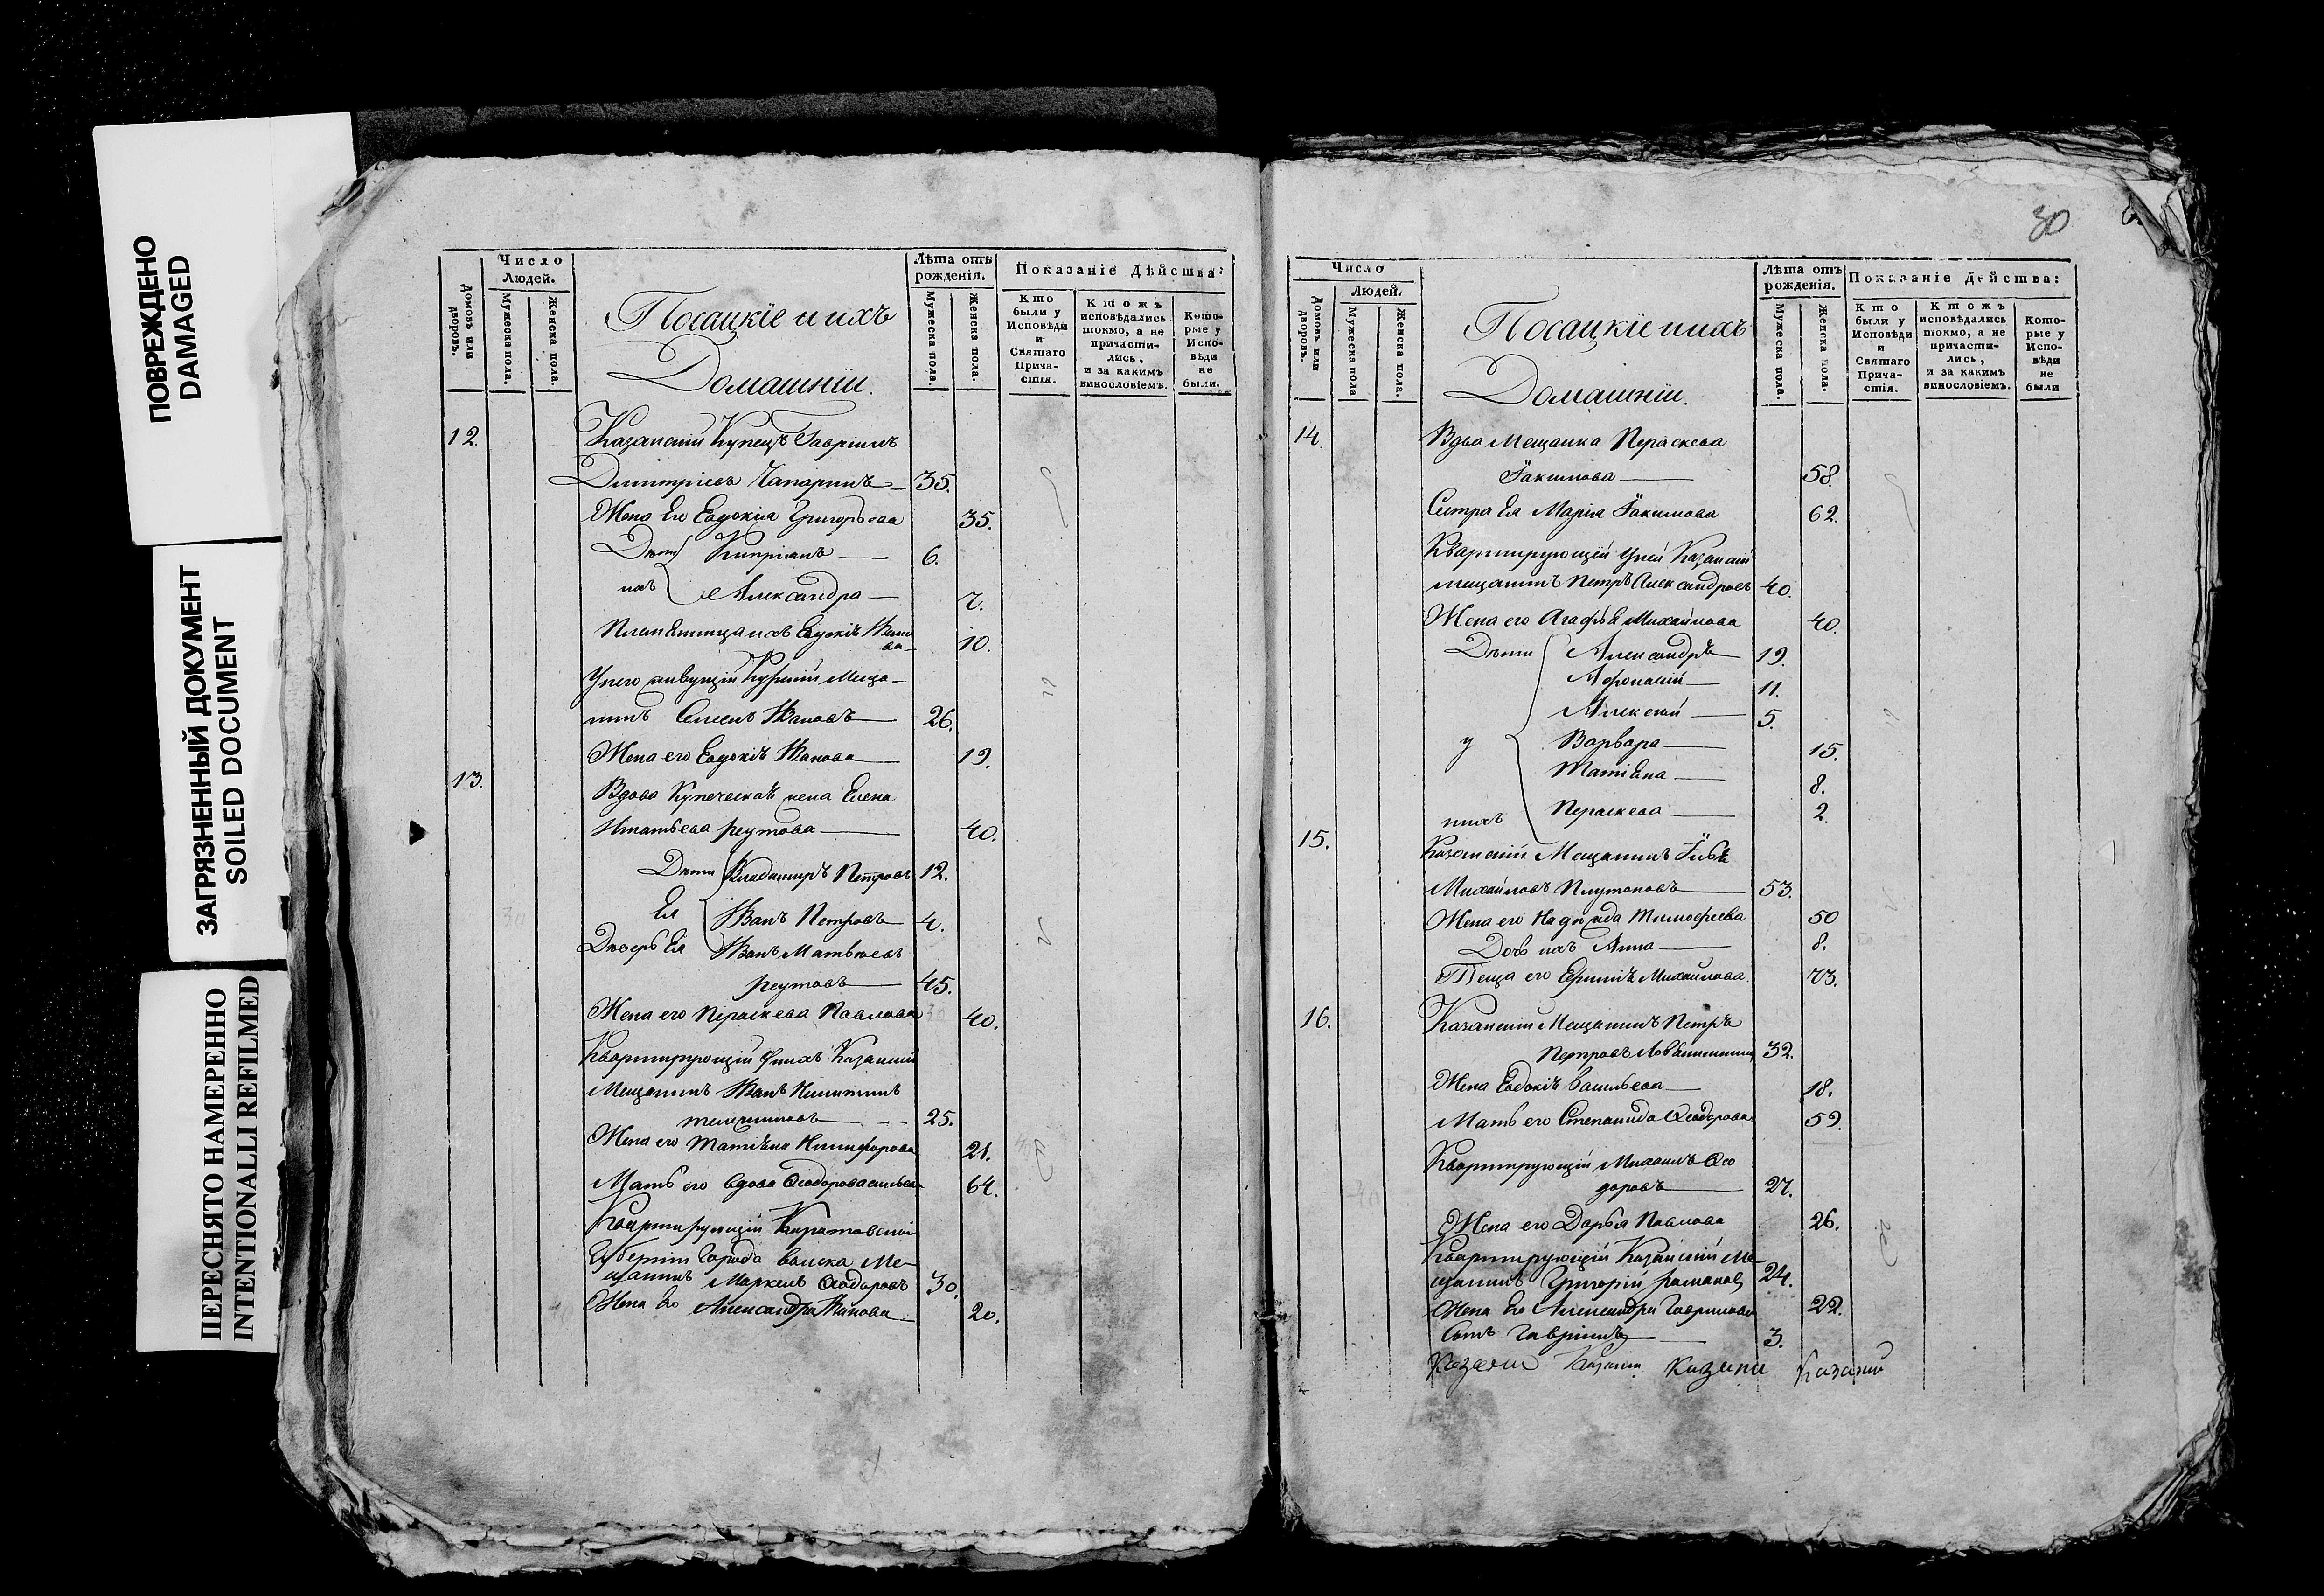 ПОВРЕЖДЕНО
DAMAGED
ЗАГРЯЗНЕННЫЙ ДОКУМЕНТ
SOILED DOCUMENT
ПЕРЕСНЯТО НАМЕРЕННО
INTENTIONALLI REFILMED
Домовъ или дворовъ.
Число Людей.
Мужеска пола.
Женска пола.
Посацкїе и ихъ
Домашнїи.
Лѣта отъ рожденія.
Мужеска пола.
Женска пола.
Показаніе Дѣйства:
Кто были у Исповѣди и Святаго Прича-стія.
Ктожъ исповѣдались токмо, а не причасти-лись, и за какимъ винословіемъ.
Кото-рые у Испо-вѣди не были.
12. Казанскій Купецъ Гавріилъ
Димитріевъ Чапаринъ 35.
Жена Его Евдокія Григорьева 35.
Дѣти Кипріянъ 6.
ихъ Александра 7.
Племянница ихъ Евдокія Ивано
ва 10.
У него живущій Мѣща-
нинъ Семенъ Ивановъ 26.
Жена его Евдокія Иванова 19.
13. Вдова Купеческая жена Елена
Игнатьева Реутова 40.
Дѣти Владимиръ Петровъ 12.
Ея Иванъ Петровъ 4.
Деверь Ея Иванъ Матвѣевъ
Реутовъ 45.
Жена его Параскева Павлова 40.
Квартирующій у нихъ Казанскій
Мещанинъ Иванъ Никитинъ
25.
Жена его Татіяна Никифорова 21.
Мать его вдова Ѳеодора Васильева 64.
Квартирующій Саратовской
Губерніи города Волска Ме-
щанинъ Маркелъ Ѳеодоровъ 30.
Жена Его Александра Иванова 20.
30
Домовъ или дворовъ.
Число Людей.
Мужеска пола
Женска пола.
Посацкїе и ихъ
Домашнїи.
Лѣта отъ рожденія.
Мужеска пола.
Женска пола.
Показаніе Дѣйства:
Кто были у Исповѣди и Святаго Прича-стія.
Ктожъ исповѣдались токмо, а не причасти-лись, и за какимъ винословіемъ.
Кото-рые у Испо-вѣди не были
14. Вдова Мещанка Параскева
Іакимова 58.
Сестра Ея Марія Іакимова 62.
Квартирующій у ней Казанскій
мещанинъ Петръ Александровъ 40.
Жена его Агафья Михайлова 40.
Дѣти Александръ 19.
Афонасій 11.
Алексѣй 5.
у Варвара 15.
Татіяна 8.
нихъ Параскева 2.
15. Казанскій Мещанинъ
Михайловъ Плутоновъ 53.
Жена его Надежда Тимофеева 50
Дочь ихъ Анна 8.
Теща его Михайлова. 73.
16. Казанскій Мещанинъ Петръ
Петровъ 32.
Жена Евдокія Васильева 18.
Мать его Степанида Ѳеодорова 59.
Квартирующій Михаилъ Ѳео
доровъ 27.
Жена его Дарья Павлова 26.
Квартирующій Казанскій Ме-
щанинъ Григорій Романовъ 24.
Жена Его Александра Гаврилова 22.
Сынъ Гавріилъ 3.